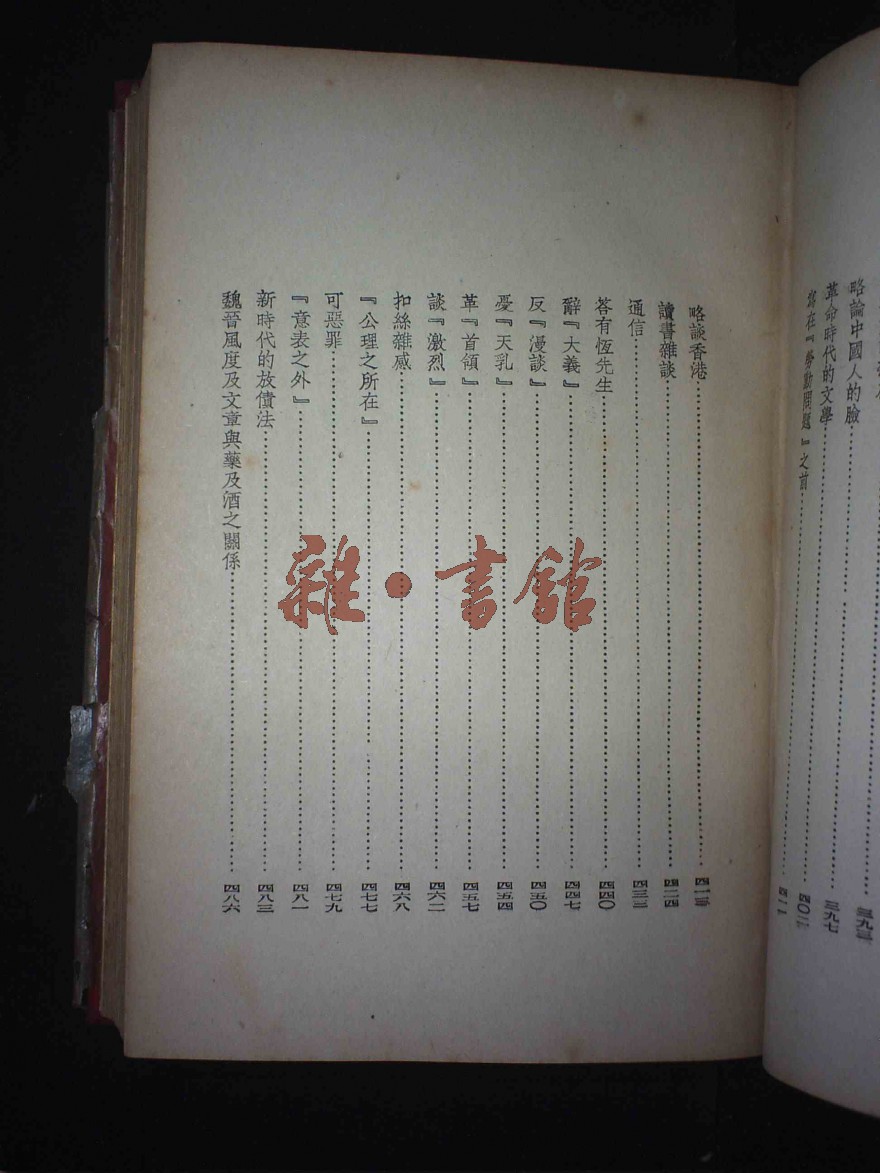 略論中國人的臉
革命時代的文學……三九七
寫在『勞動問題』之前……四〇二
四一一
略談香港……四一三
讀書雜談……四二四
通信……四三三
答有恆先生……四四〇
辭『大義』……四四七
反『漫談』……四五〇
憂『天乳』……四五四
革『首領』……四五七
談『激烈』……四六二
扣絲雜感……四六八
『公理之所在』……四七七
可惡罪……四七九
『意表之外』……四八一
新時代的放債法……四八三
魏晉風度及文章與藥及酒之關係……四八六
雜·書館